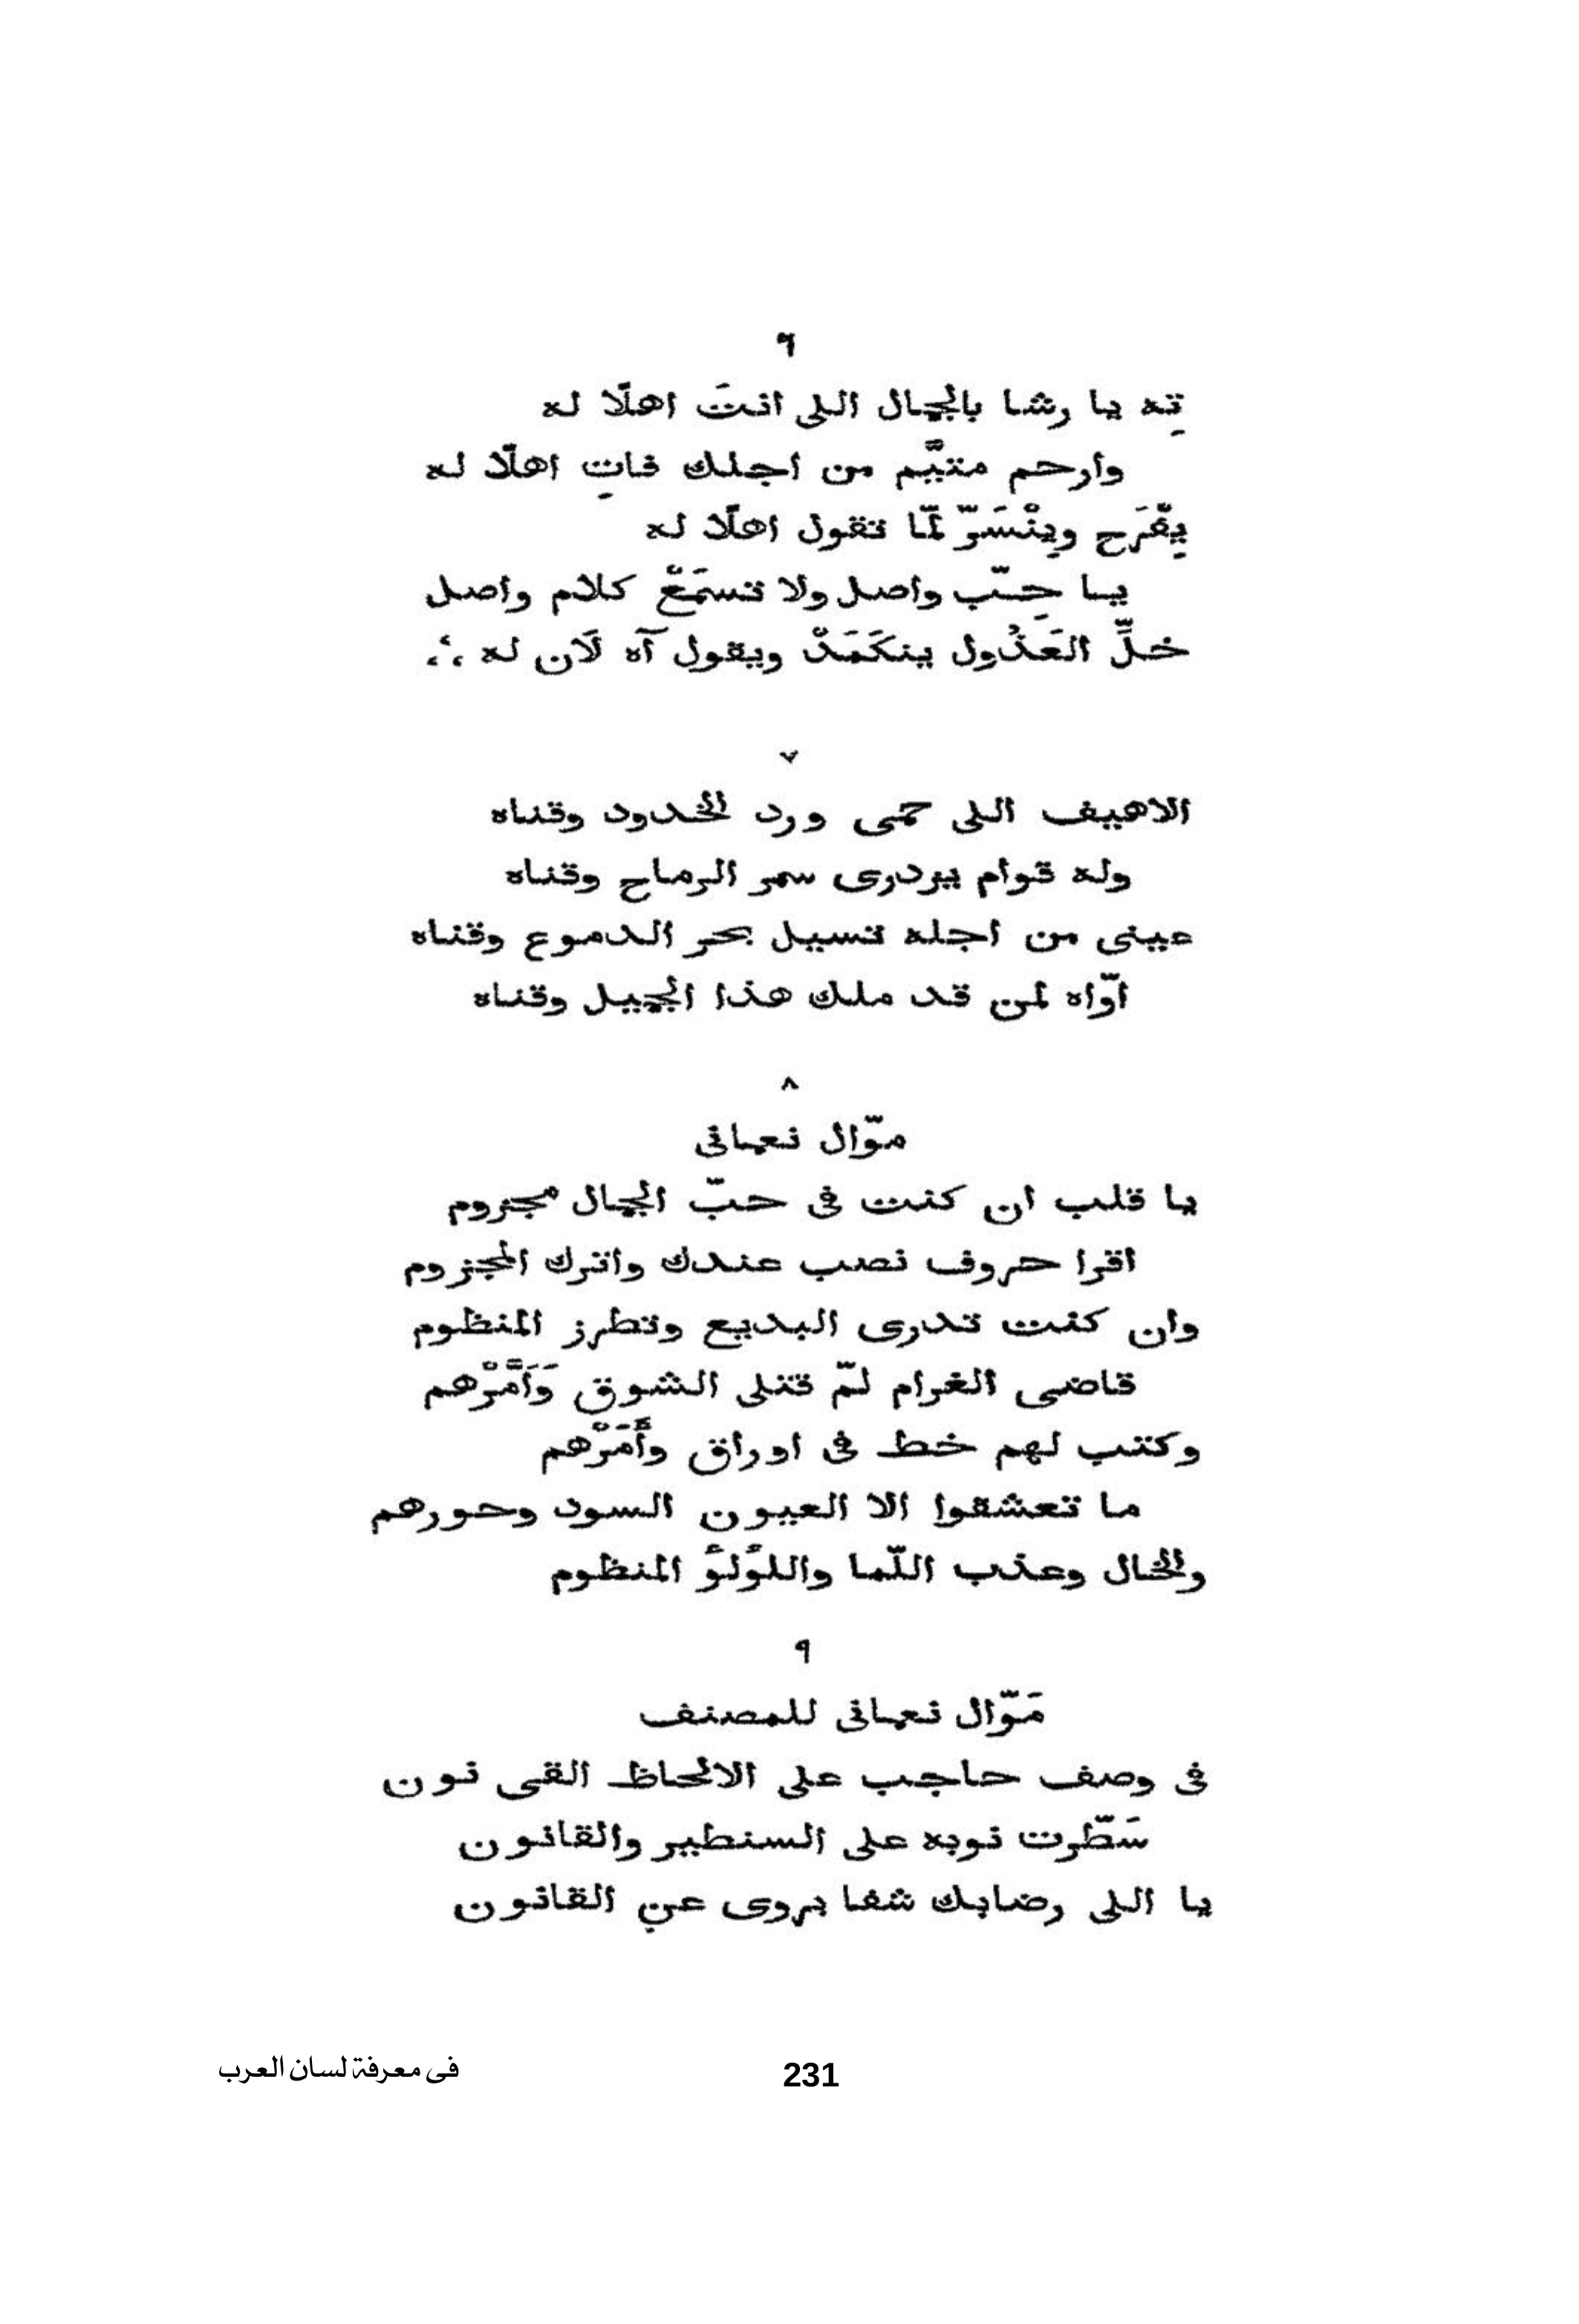 ٦
تِه يا رشا بالجمال اللى انتَ اهلًا له
وارحم متيَّم من اجلك فاتِ اهلًا له
يِفّرَح وِينْسَرّ لمّا تقول اهلًا له
يا حِبّ واصل ولا تسمَعْ كلام واصل
خلِّ العَذُول ينكَمَدْ ويقول آه لَان له ؞
٧
الاهيف اللى حمى ورد الخدود وقناه
وله قوام يزدرى سمر الرماح وقناه
عينى من اجله تسيل بحر الدموع وقناه
اوّاه لمن قد ملك هذا الجميل وقناه
٨
موّال نعمانى
يا قلب ان كنت فى حبّ الجمال مجزوم
اقرا حروف نصب عندك واترك المجزوم
وان كنت تدرى البديع وتطرز المنظوم
قاضى الغرام لمّ قتلى الشوق وَأَمَّرْهم
وكتب لهم خط فى اوراق وأَمَرْهم
ما تعشقوا الا العيون السود وحورهم
والخال وعذب اللّما واللؤلؤ المنظوم
٩
مَوّال نعمانى للمصنف
فى وصف حاجب على الالحاظ القى نون
سَطّرت نوبه على السنطير والقانون
يا اللى رضابك شفا يروى عن القانون
231
فى معرفة لسان العرب